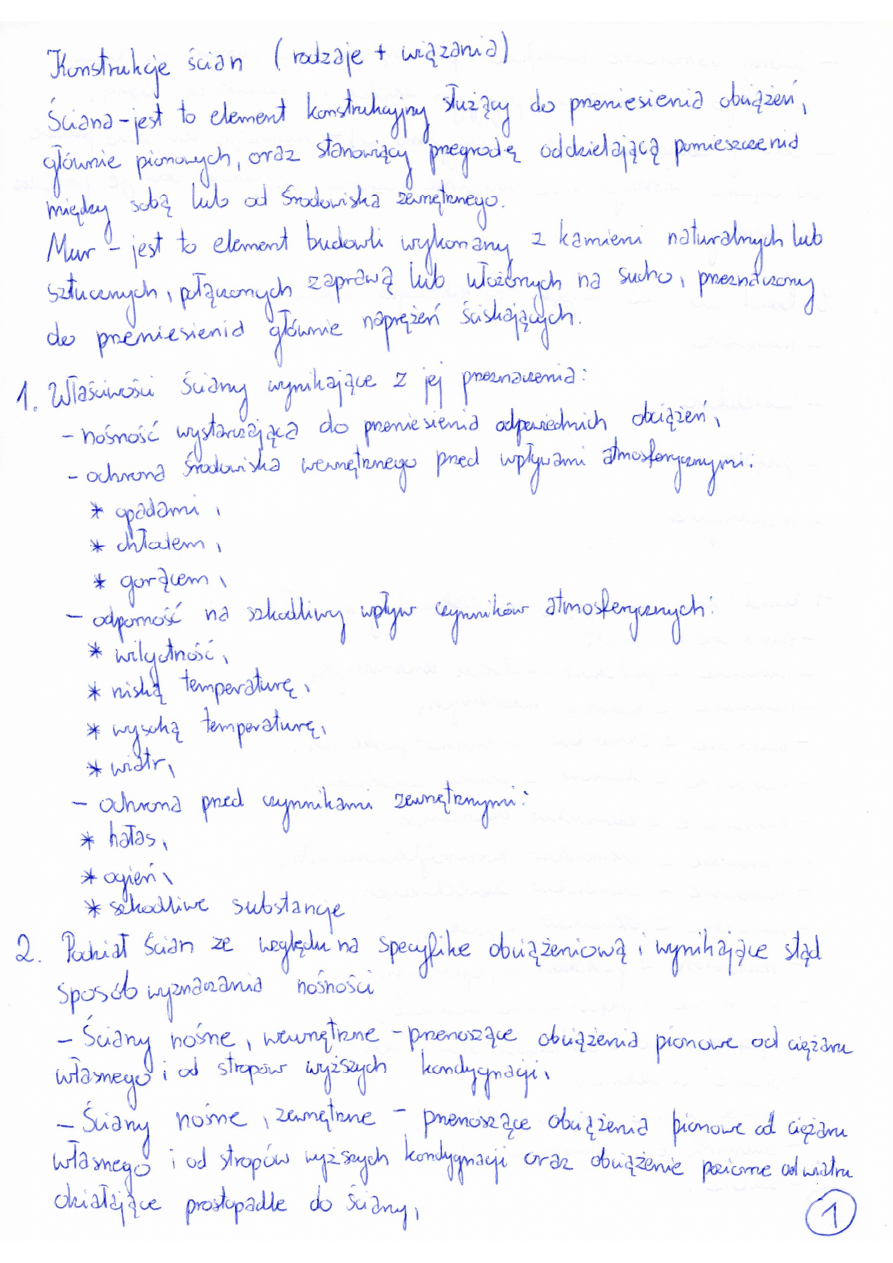 Konstrukcje ścian (rodzaje + wiązania)
Ściana - jest to element konstrukcyjny służący do przeniesienia obciążeń,
głównie pionowych, oraz stanowiący przegrodę oddzielającą pomieszczenia
między sobą lub od środowiska zewnętrznego.
Mur - jest to element budowli wykonany z kamieni naturalnych lub
sztucznych, połączonych zaprawą lub ułożonych na sucho, przeznaczony
do przeniesienia głównie naprężeń ściskających.
1. Właściwości ściany wynikające z jej przeznaczenia:
- nośność wystarczająca do przeniesienia odpowiednich obciążeń,
- ochrona środowiska wewnętrznego przed wpływami atmosferycznymi:
* opadami,
* chłodem,
* gorącem,
- odporność na szkodliwy wpływ czynników atmosferycznych:
* wilgotność,
* niską temperaturę,
* wysoką temperaturę,
* wiatr,
- ochrona przed czynnikami zewnętrznymi:
* hałas,
* ogień,
* szkodliwe substancje
2. Podział ścian ze względu na specyfike obciążeniową i wynikające stąd
sposób wyznaczania nośności
- Ściany nośne, wewnętrzne - przenoszące obciążenia pionowe od ciężaru
własnego i od stropów wyższych kondygnacji,
- Ściany nośne, zewnętrzne - przenoszące obciążenia pionowe od ciężaru
własnego i od stropów wyższych kondygnacji oraz obciążenie poziome od wiatru
działające prostopadle do ściany,
1